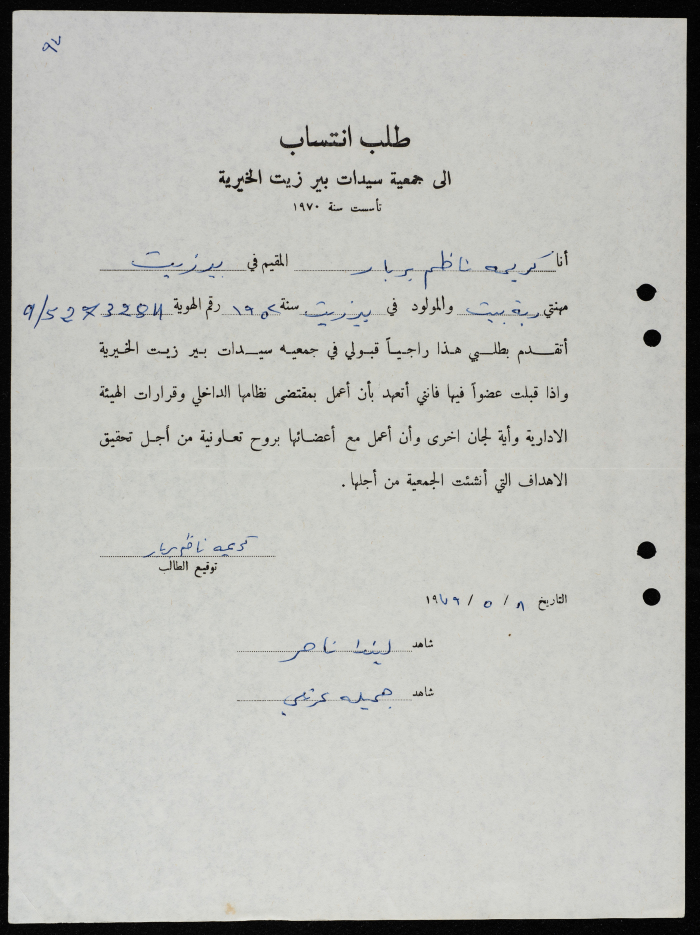 ٩٧
طلب انتساب
الى جمعية سيدات بير زيت الخيرية
تأسست سنة ١٩٧٠
أنا كريمه ناظم بربار المقيم في بيرزيت
مهنتي ربة بيت والمولود في بيرزيت سنة ١٩٥٢ رقم الهوية
أتقدم بطلبي هذا راجياً قبولي في جمعيه سيدات بير زيت الخيرية
واذا قبلت عضواً فيها فانني أتعهد بأن أعمل بمقتضى نظامها الداخلي وقرارات الهيئة
الادارية وأية لجان اخرى وأن أعمل مع أعضائها بروح تعاونية من أجل تحقيق
الاهداف التي أنشئت الجمعية من أجلها .
كريمه ناظم بربار
توقيع الطالب
التاريخ ٨ / ٥ / ١٩٧٩
شاهد ليندا ناصر
شاهد جميله